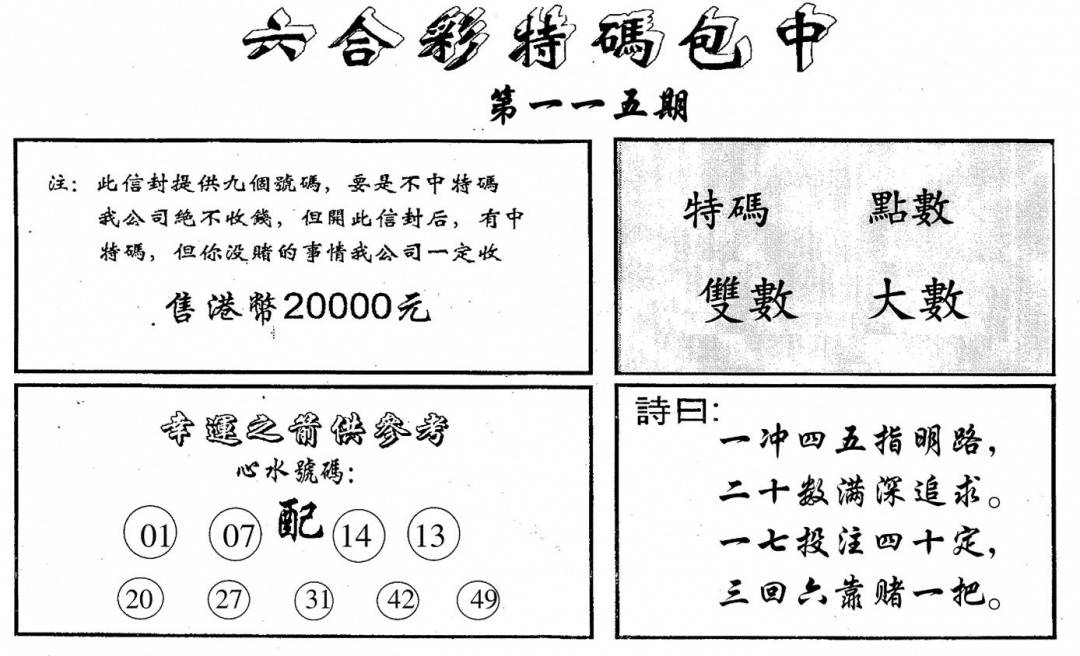 六合彩特碼包中
第一一五期
注：此信封提供九個號碼，要是不中特碼
我公司絕不收錢，但開此信封后，有中
特碼，但你没賭的事情我公司一定收
售港幣20000元
特碼 點數
雙數 大數
幸運之箭供參考
心水號碼：
配
01 07 14 13
20 27 31 42 49
詩曰：
一冲四五指明路，
二十数满深追求。
一七投注四十定，
三回六靠赌一把。